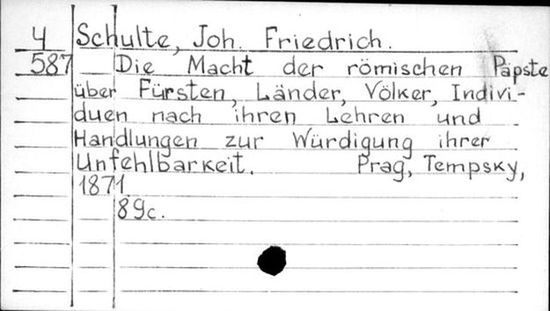 4 Schulte, Joh. Friedrich.
587 Die Macht der römischen Päpste
über Fürsten, Länder, Völker, Indivi-
duen nach ihren Lehren und
Handlungen zur Würdigung ihrer
Unfehlbarkeit. Prag, Tempsky,
1871.
89c.